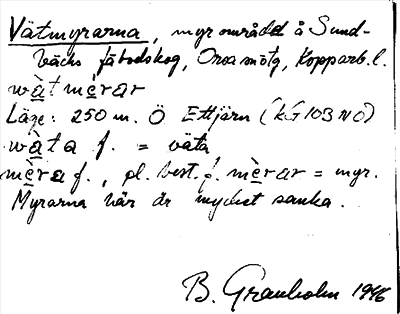 Vätmyrarna, myrområde å Sund-
bäcks fäbodskog, Orsa mstg, Kopparb. l.
wàtmèrar
Läge: 250 m. Ö Ettjärn (KG 103 NO)
wàta f. = väta
mèra f., pl. best. f. mèrar = myr.
Myrarna här är mycket sanka.
B. Granholm 1946